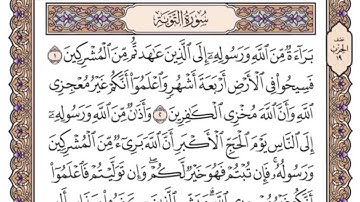 سُورَةُ التَّوْبَةِ
بَرَآءَةٌ مِّنَ ٱللَّهِ وَرَسُولِهِۦٓ إِلَى ٱلَّذِينَ عَٰهَدتُّم مِّنَ ٱلْمُشْرِكِينَ ١
فَسِيحُوا۟ فِى ٱلْأَرْضِ أَرْبَعَةَ أَشْهُرٍ وَٱعْلَمُوٓا۟ أَنَّكُمْ غَيْرُ مُعْجِزِى
ٱللَّهِ وَأَنَّ ٱللَّهَ مُخْزِى ٱلْكَٰفِرِينَ ٢ وَأَذَٰنٌ مِّنَ ٱللَّهِ وَرَسُولِهِۦٓ
إِلَى ٱلنَّاسِ يَوْمَ ٱلْحَجِّ ٱلْأَكْبَرِ أَنَّ ٱللَّهَ بَرِىٓءٌ مِّنَ ٱلْمُشْرِكِينَ
وَرَسُولُهُۥ فَإِن تُبْتُمْ فَهُوَ خَيْرٌ لَّكُمْ وَإِن تَوَلَّيْتُمْ فَٱعْلَمُوٓا۟
الحزب
١٩